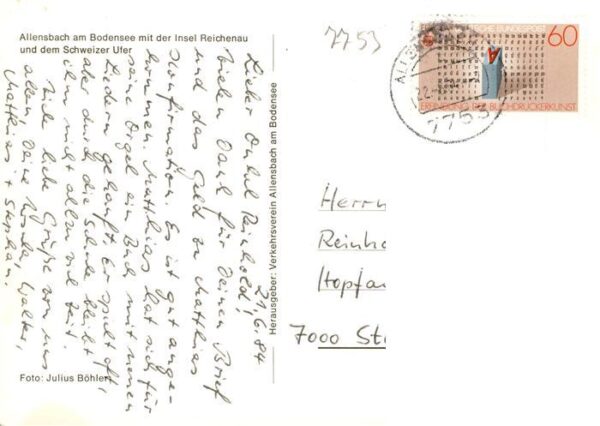 Allensbach am Bodensee mit der Insel Reichenau
und dem Schweizer Ufer
21.6.84
Lieber Onkel Reinhold!
Vielen Dank für Deinen Brief
und das Geld zu Matthias
Konfirmation. Es ist gut ange-
kommen. Matthias hat sich für
seine Orgel ein Buch mit neuen
Liedern gekauft. Er spielt oft,
aber durch die Schule bleibt
ihm nicht allzu viel Zeit.
Viele liebe Grüße von uns
allen, Deine Ursula, Walter,
Matthias + Stephan.
Foto: Julius Böhler
Herausgeber: Verkehrsverein Allensbach am Bodensee
7753
DEUTSCHE BUNDESPOST
60
ERFINDUNG DER BUCHDRUCKERKUNST
ALLENSBACH
22.-
7753
Herrn
Reinho
Hopfa
7000 St